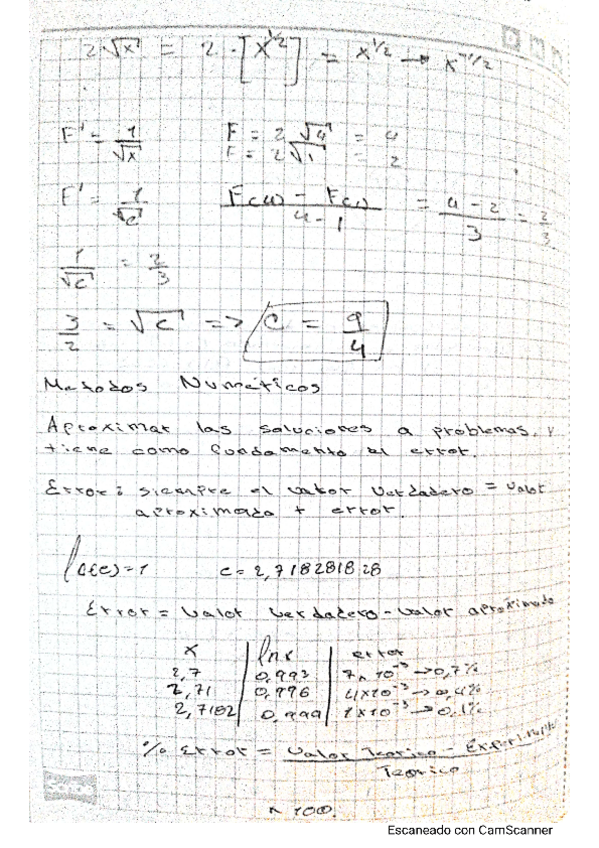 2√x = 2 · [x^1/2] = x^1/2 → x^-1/2
F' = 1/√x F = 2√4 = 4
F = 2√1 = 2
F' = 1/√c F(4) - F(1) / 4-1 = 4-2/3 = 2/3
1/√c = 2/3
3/2 = √c => C = 9/4
Metodos Numéricos
Aproximar las soluciones a problemas, y
tiene como fundamento el error.
Error: siempre el valor verdadero = valor
aproximado + error.
ln(e)=1 e = 2,718281828
Error = valor verdadero - valor aproximado
x | lnx | error
2,7 | 0,993 | 7x10^-3 → 0,7%
2,71 | 0,996 | 4x10^-3 → 0,4%
2,7182 | 0,999 | 1x10^-3 → 0.1%
% Error = Valor Teorico - Experimental / Teorico
x 100.
Escaneado con CamScanner